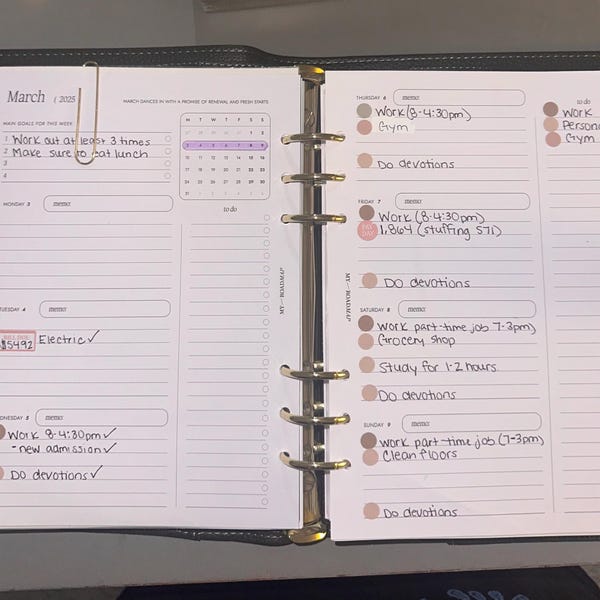 March (2025
MARCH DANCES IN WITH A PROMISE OF RENEWAL AND FRESH STARTS
MAIN GOALS FOR THIS WEEK
1 Work out at least 3 times
2 Make sure to eat lunch
3
4
M T W T F S S
1 2
3 4 5 6 7 8 9
10 11 12 13 14 15 16
17 18 19 20 21 22 23
24 25 26 27 28 29 30
31
to do
MONDAY 3 memo
TUESDAY 4 memo
$54.92 Electric ✓
DNESDAY 5 memo
Work 8-4:30pm ✓
-new admission ✓
DO devotions ✓
MY—ROADMAP
THURSDAY 6 memo
Work (8-4:30pm)
Gym
Do devotions
FRIDAY 7 memo
Work (8-4:30pm)
PAY DAY 1,864 (stuffing 571)
DO devotions
MY—ROADMAP
SATURDAY 8 memo
Work part-time job 7-3pm)
Grocery shop
Study for 1-2 hours
Do devotions
SUNDAY 9 memo
Work part-time job (7-3pm)
Clean floors
Do devotions
to do
Work
Person
Gym